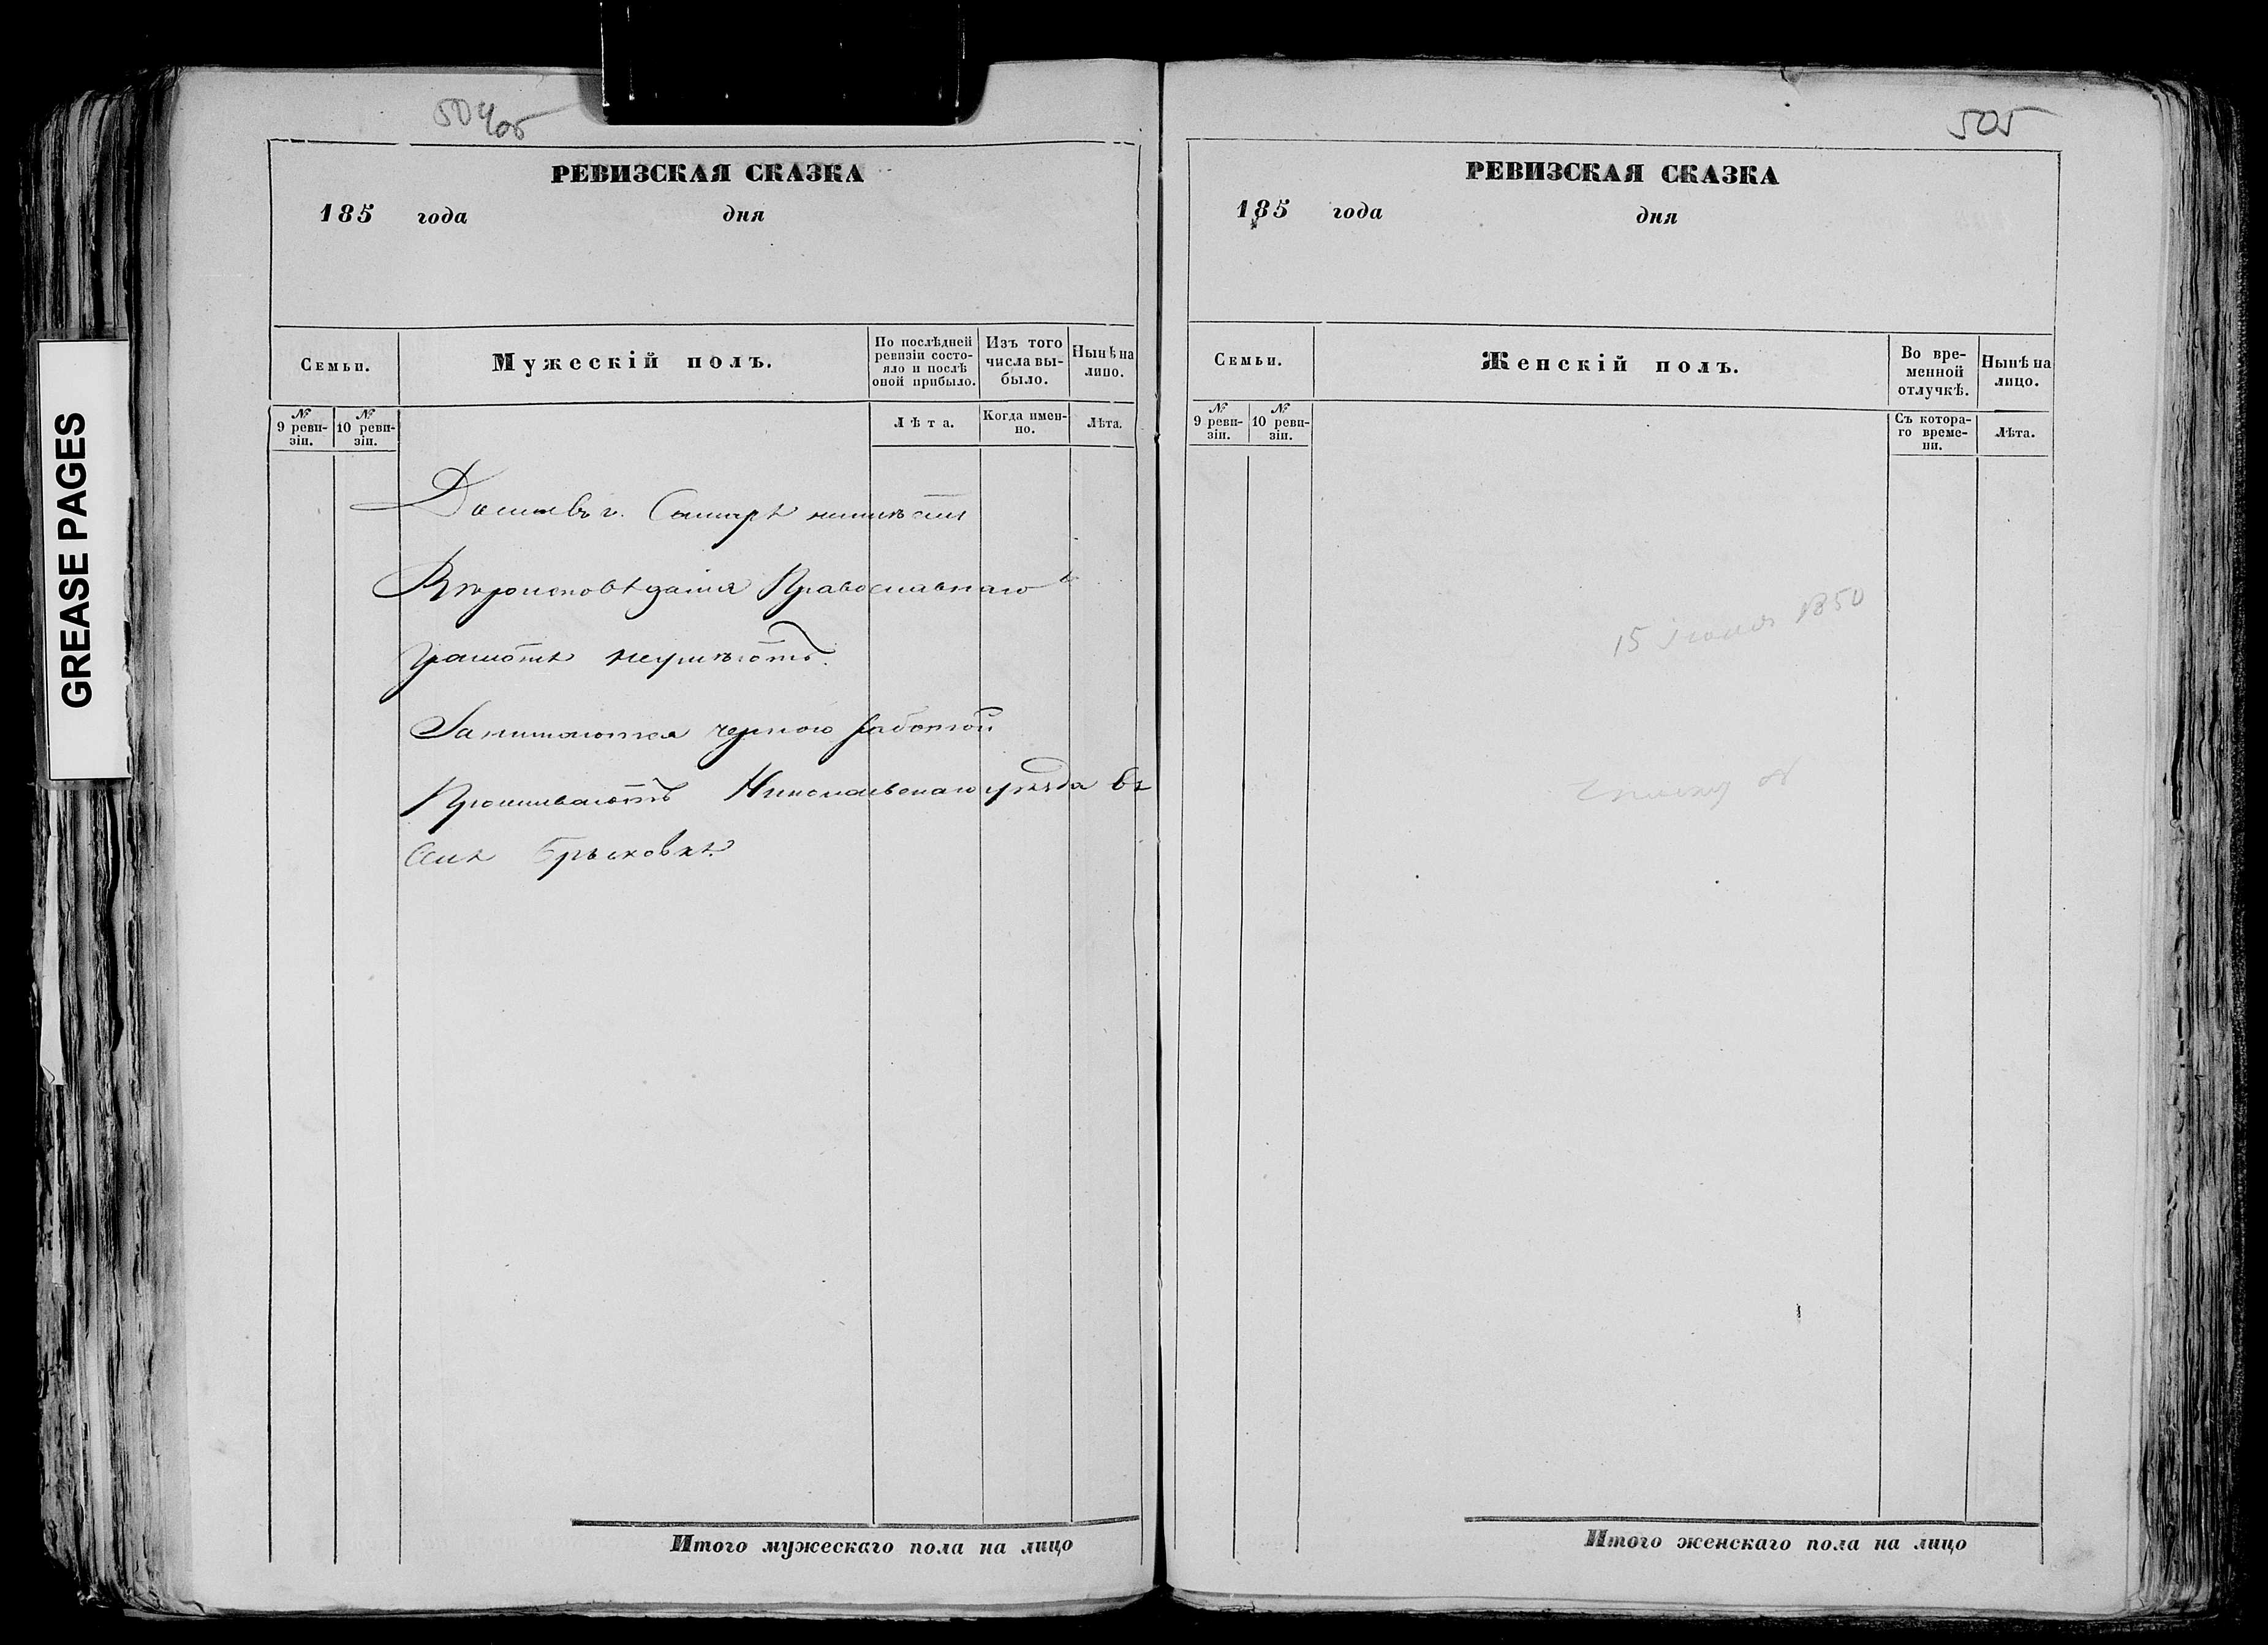 504 05
РЕВИЗСКАЯ СКАЗКА
185 года дня
Семьи.
Мужескій полъ.
По послѣдней ревизіи состояло и послѣ оной прибыло.
Изъ того числа выбыло.
Нынѣ на лицо.
№ 9 ревизіи.
№ 10 ревизіи.
Лѣта.
Когда именно.
Лѣта.
Домовъ в г. Самарѣ неимѣютъ
Вѣроисповѣданія Православнаго
Грамотѣ неумѣютъ.
Занимаются черною работой
Проживаютъ Николаевскаго уѣзда въ
Селѣ Брыковкѣ.
Итого мужескаго пола на лицо
505
РЕВИЗСКАЯ СКАЗКА
185 года дня
Семьи.
Женскій полъ.
Во временной отлучкѣ.
Нынѣ на лицо.
№ 9 ревизіи.
№ 10 ревизіи.
Съ котораго времени.
Лѣта.
15 1850
Итого женскаго пола на лицо
GREASE PAGES